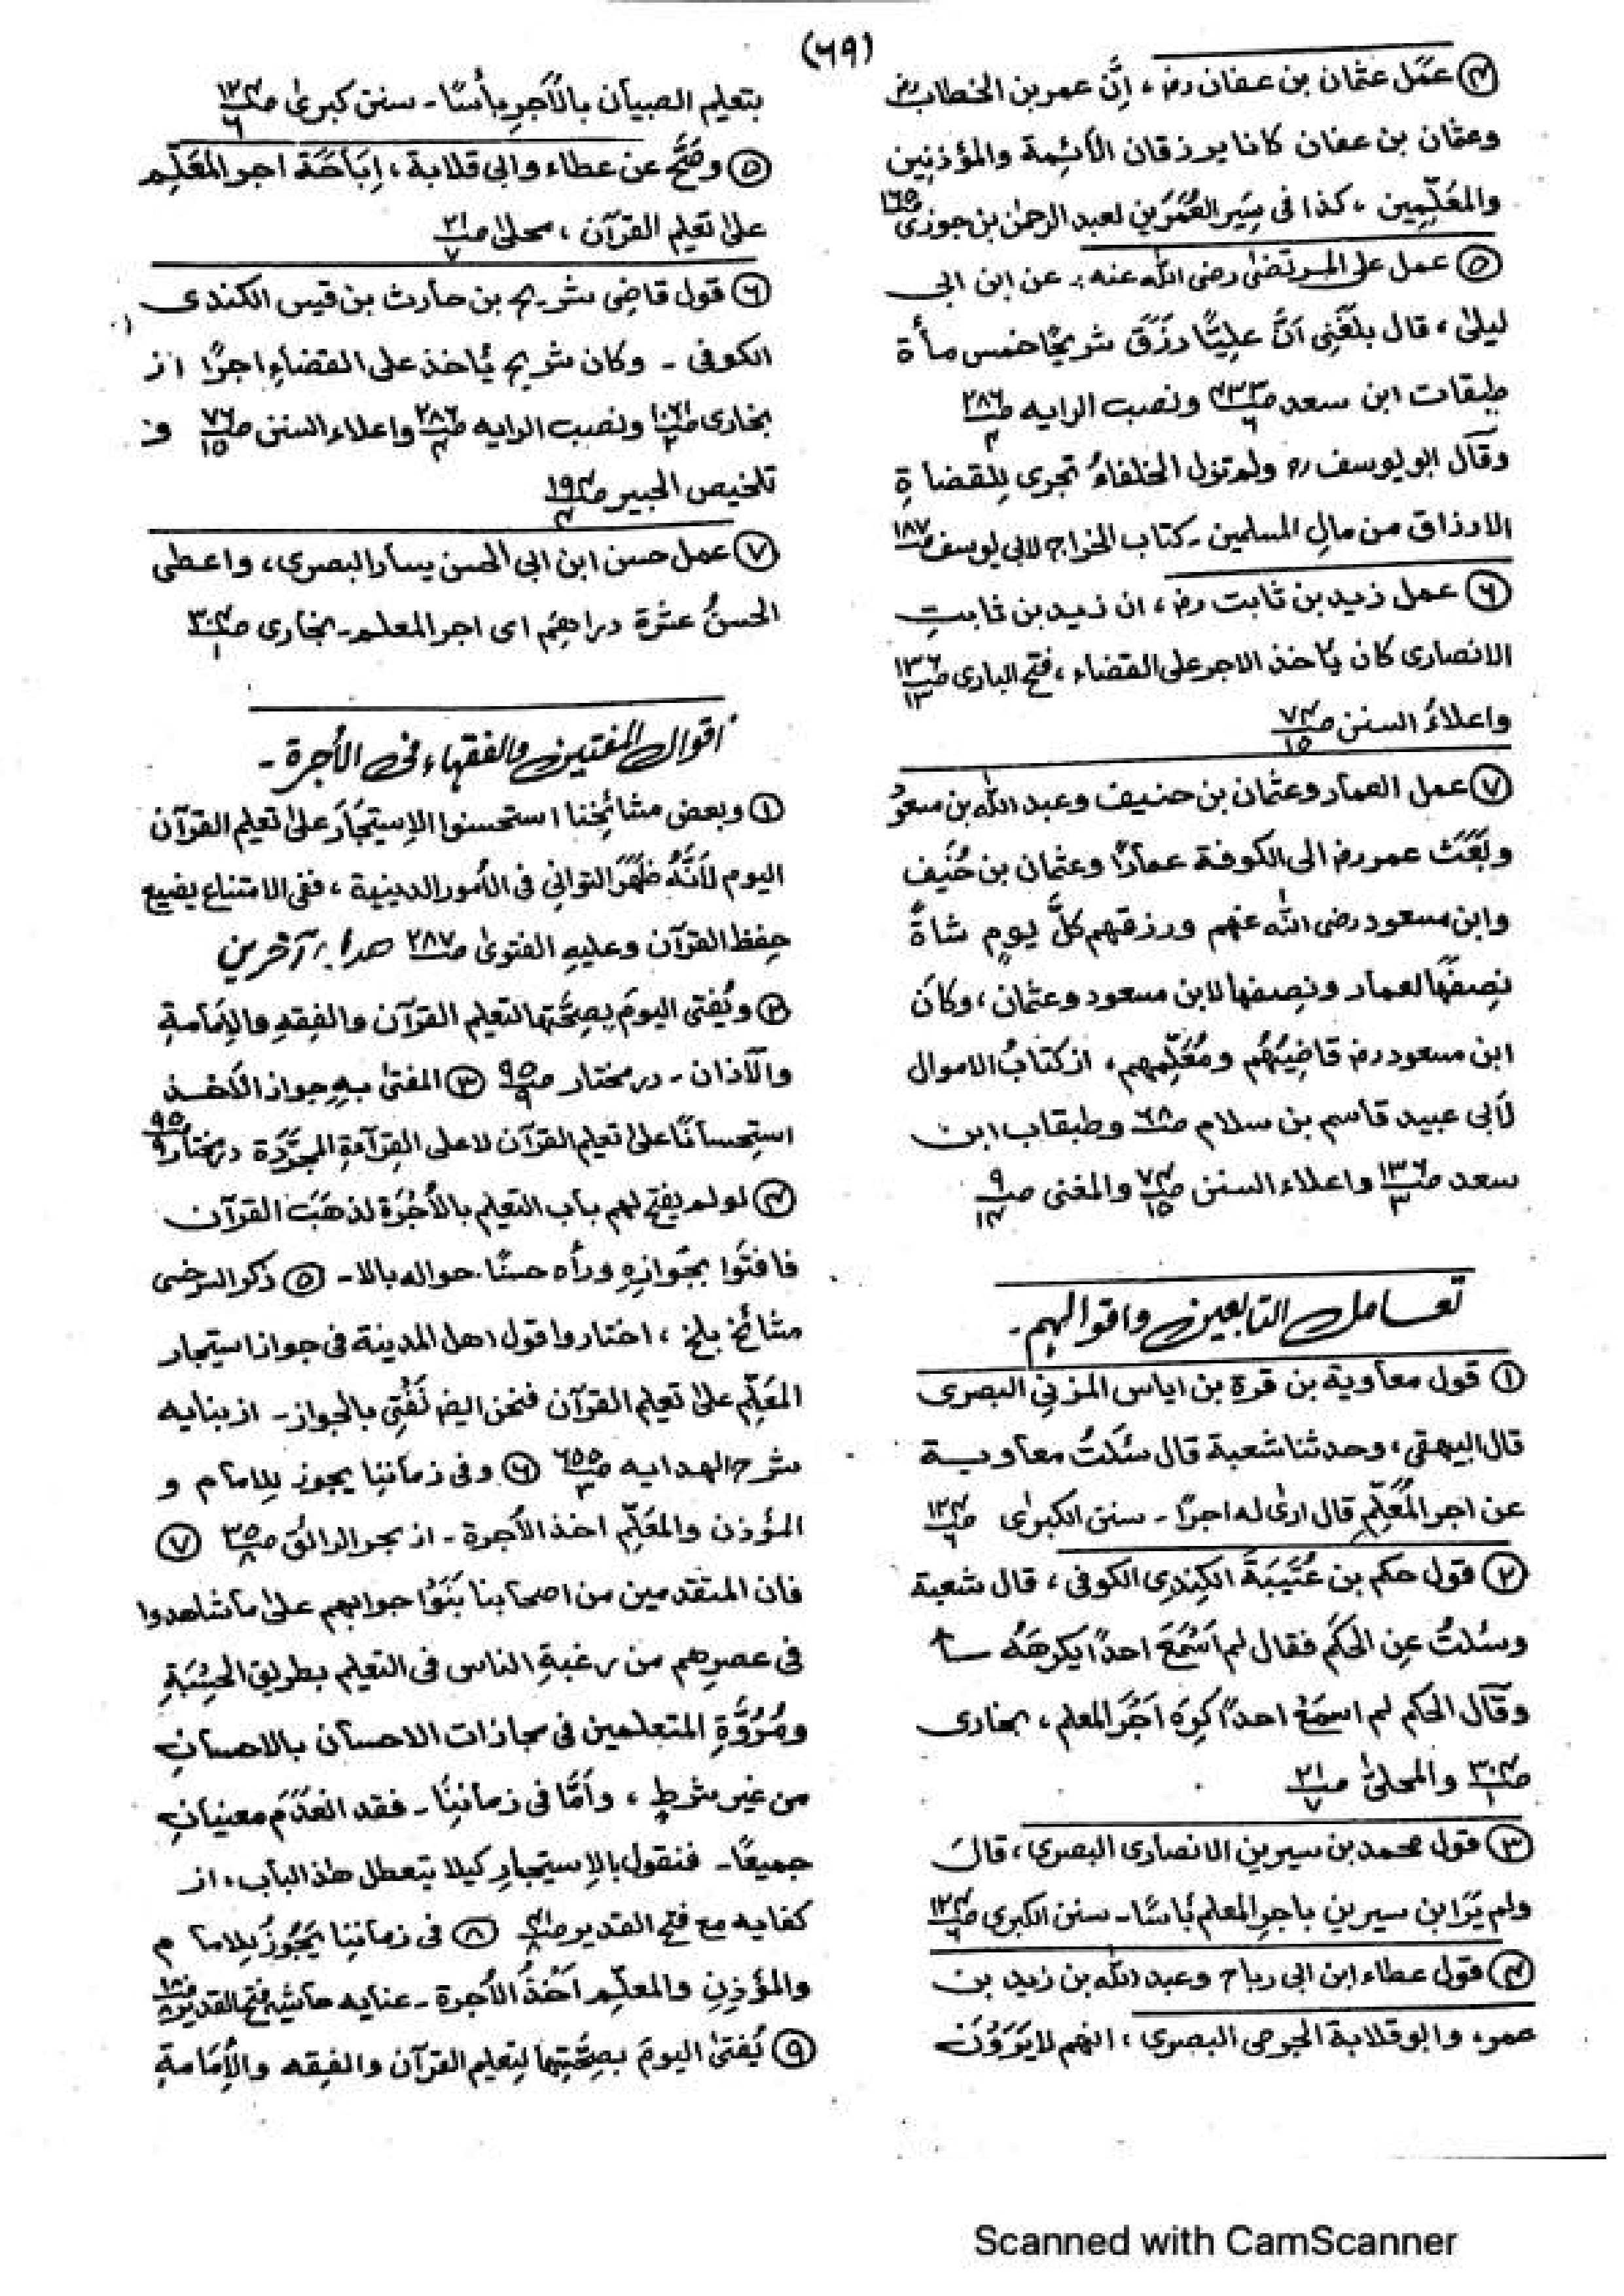 (٦٩)
④ عمل عثمان بن عفان رض ، إنّ عمر بن الخطاب رض
وعثمان بن عفان كانا يرزقان الأئمة والمؤذنين
والمُعلِّمين ، كذا فى سِيَر العُمَرين لعبد الرحمٰن بن جوزى ص١٦٥
⑤ عمل على المرتضىٰ رضى الله عنه : عن ابن ابى
ليلىٰ ، قال بلَغَنِى أنَّ علِيًّا رزَقَ شريحًا خمس مأة
طبقات ابن سعد ونصب الرايه ص٢٨٦/٤
وقال ابو يوسف رح ولم تزل الخلفاءُ تجرى لِلقضاةِ
الارزاق من مالِ المسلمين ـ كتاب الخراج لابى يوسف ص١٨٧
⑥ عمل زيد بن ثابت رض ، ان زيد بن ثابتِ
الانصارى كان يأخذ الاجر على القضاء ، فتح البارى ص١٣٦/١٣
واعلاءُ السنن ص٧٤/١٥
⑦ عمل العمار وعثمان بن حنيف وعبد الله بن مسعود
وبَعَثَ عمر رض الى الكوفة عمارًا وعثمان بن حُنَيف
وابن مسعود رضى الله عنهم ورزقهم كلَّ يومٍ شاةً
نِصفَها لعمار ونِصفها لابن مسعود وعثمان ، وكانَ
ابن مسعود رض قاضِيَهُم ومُعَلِّمهم ، از كتابُ الاموال
لأبى عبيد قاسم بن سلام ص٦٨ وطبقاب ابن
سعد ص١٣٦/٣ واعلاء السنن ص٧٤/١٥ والمغنى ص٩/١٤
تعامل التابعين واقوالهم ـ
① قول معاوية بن قرة بن اياس المزنِى البصرى
قال البيهقى ، وحدثنا شعبة قال سُئلتُ معاوية
عن اجر المُعَلِّمِ قال ارىٰ له اجرًا ـ سنن الكبرىٰ ص١٢٤/٦
② قول حكم بن عُتَيبَةَ الكِندِى الكوفى ، قال شعبة
وسُئلتُ عنِ الحَكَم فقال لم أسْمَعَ احدًا يكرهَهُ
وقال الحَكم لم اسمَعْ احدًا كرِهَ أجْرَ المعلم ، بخارى
ص٣٠٤/١ والمحلىٰ ص٢١/٧
③ قول محمد بن سيرين الانصارى البصرى ، قالَ
ولم يَرَ ابن سيرين باجرِ المعلم بأسًا ـ سنن الكبرى ص١٢٤/٦
④ قول عطاء ابن ابى رباح وعبد الله بن زيد بن
عمرو ابو قلابة الجرمى البصرى ، انهم لا يَرَوْنَ
بتعليم الصبيان بالأجرِ بأسًا ـ سنن كبرىٰ ص١٢٤/٦
⑤ وصَحَّ عن عطاء وابى قلابة ، إبَاحَةَ اجرِ المُعَلِّم
علىٰ تعليم القرآن ، محلىٰ ص٢١/٧
⑥ قول قاضى شريح بن حارث بن قيس الكندى
الكوفى ـ وكان شريح يأخذ على القضاءِ اجرًا از
بخارى ص١٠٦١/٢ ونصب الرايه ص٢٨٦/٤ واعلاء السنن ص٧٦/١٥ و
تلخيص الحبير ص١٩٤/٤
⑦ عمل حسن ابن ابى الحسن يسار البصرى ، واعطى
الحسنُ عشْرة دراهِمَ اى اجر المعلم ـ بخارى ص٣٠٤/١
اقوال المفتين والفقهاء فى الأجرة ـ
① وبعض مشائِخنا استحسنوا الإستِجَارَ علىٰ تعليم القرآن
اليوم لأنَّهُ ظَهَرَ التوانِى فى الأمور الدينية ، ففى الامتناع يضيع
حِفظ القرآن وعليهِ الفتوىٰ ص٢٨٧ هدايہ آخرين
② ويُفتى اليومَ بِصِحَّتِها لتعليم القرآن والفِقهِ والإمامةِ
والأذان ـ در مختار ص٩٥/٩ ③ المفتىٰ بِهِ جواز الأخذ
استِحسانًا علىٰ تعليم القرآن لا على القِرآءةِ المجرَّدة درمختار ص٩٥/٩
④ لو لم يفتح لهم باب التعليم بالأُجْرَة لذهَبَ القرآن
فافتَوا بجَوازِهِ ورأه حسنًا . حواله بالا ـ ⑤ ذكر السرخسى
مشائخ بلخ ، اختاروا قول اهل المدينة فى جواز استيجار
المُعَلِّم علىٰ تعليم القرآن فنحن ايضا نُفْتِى بالجواز ـ از بنايه
شرح الهدايه ص٦٥٥/٣ ⑥ وفى زمانِنا يجوز لِلامام و
المؤذن والمُعَلِّم اخذ الأجرة ـ از بحر الرائق ص٣٥/٨ ⑦
فان المتقدمين من اصحابنا بَنَوْا جوابهم علىٰ ما شاهدوا
فى عصرِهم من رغبةِ الناس فى التعليم بطريق الحِسْبَةِ
ومُرُوَّةِ المتعلمين فى مجازات الاحسان بالاحسانِ
من غيرِ شرطٍ ، وأمَّا فى زمانِنا ـ فقد انعَدَمَ معنيانِ
جميعًا ـ فنقول بالإستِيجارِ كيلا يتعطل هذا الباب ، از
كفايه مع فتح القدير ⑧ فى زمانِنا يَجُوزُ لِلاما م
والمؤذِنِ والمعلّم أخْذُ الأجرة ـ عنايه حاشيه فتح القدير
⑨ يُفتىٰ اليومَ بصِحَّتِها لِتعليم القرآن والفِقه والإمَامةِ
Scanned with CamScanner